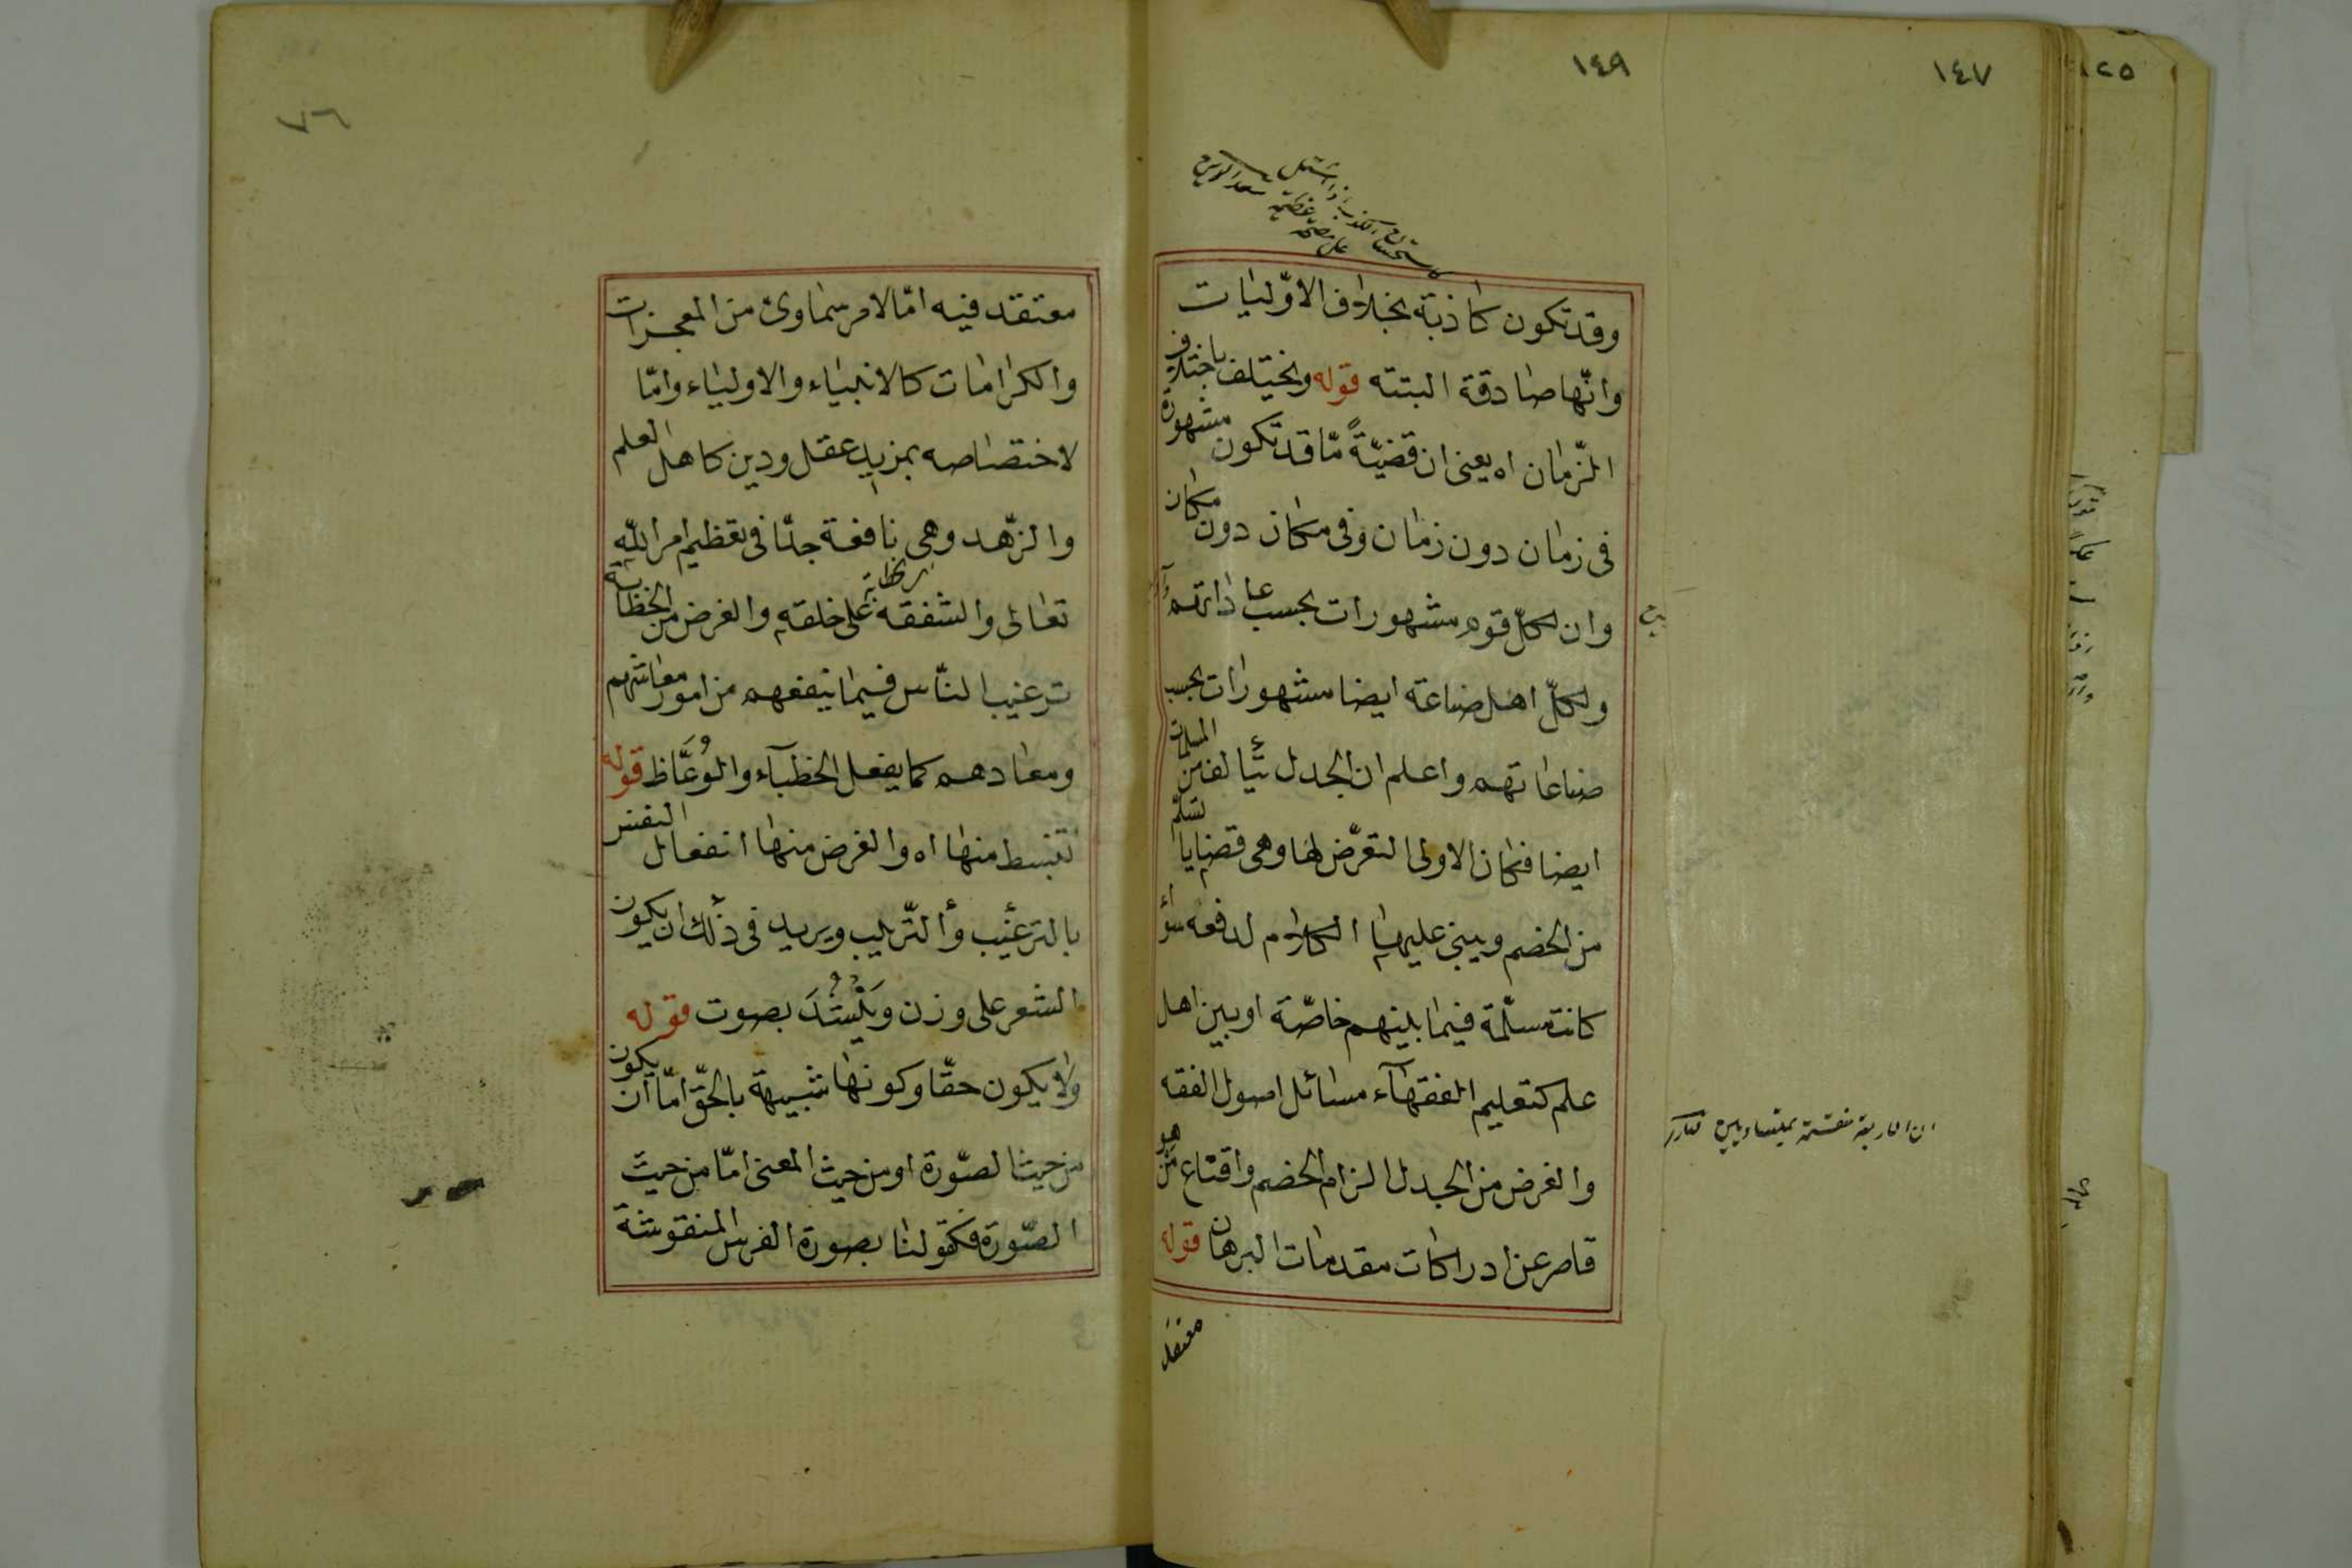 ١٤٩
١٤٧
وقد تكون كاذبة بخلاف الاوّليات
وانّها صادقة البتته قوله ويختلف باختلاف
الزّمان اه يعنى ان قضيّةً مّا قد تكون مشهورة
فى زمان دون زمان وفى مكان دون مكان
وان لكلّ قوم مشهورات بحسب عاداتهم
ولكلّ اهل صناعة ايضا مشهورات بحسب
صناعاتهم واعلم ان الجدل يتألف من المسلمات
ايضا فكان الاولى التعرّض لها وهى قضايا تسلّم
من الخصم ويبنى عليها الكلام لدفعه سوأ
كانت مسلّمة فيما بينهم خاصّة او بين اهل
علم كتعليم الفقهآء مسائل اصول الفقه
والغرض من الجدل الزام الخصم واقناع من هو
قاصر عن ادراكات مقدمات البرهان قوله
معتقد
٧٦
معتقد فيه امّا لامر سماوى من المعجزات
والكرامات كالانبياء والاولياء وامّا
لاختصاصه بمزيد عقل ودين كاهل العلم
والزّهد وهى نافعة جدّا فى تعظيم امر اللّه
تعالى والشفقة على خلقه والغرض من الخطابة
ترغيب النّاس فيما ينفعهم من امور معاشهم
ومعادهم كما يفعل الخطبآء والوُعَّاظ قوله
تنبسط منها اه والغرض منها انفعال النفس
بالترغيب والتّرهيب ويريد فى ذلك ان يكون
الشعر على وزن ويُنْشَدَ بصوت قوله
ولا يكون حقّا وكونها شبيهة بالحقّ امّا ان يكون
من حيث الصّورة او من حيث المعنى امّا من حيث
الصّورة فكقولنا بصورة الفرس المنقوشة